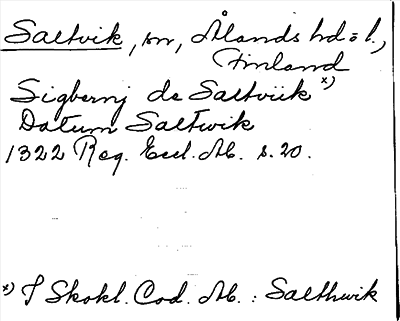 Saltvik, sn, Ålands hd o l.,
Finland
Sigbernj de Saltviik x)
Datum Saltwik
1322 Reg. Eccl. Ab. s. 20.
x) I Skokl. Cod. Ab. : Salthwik